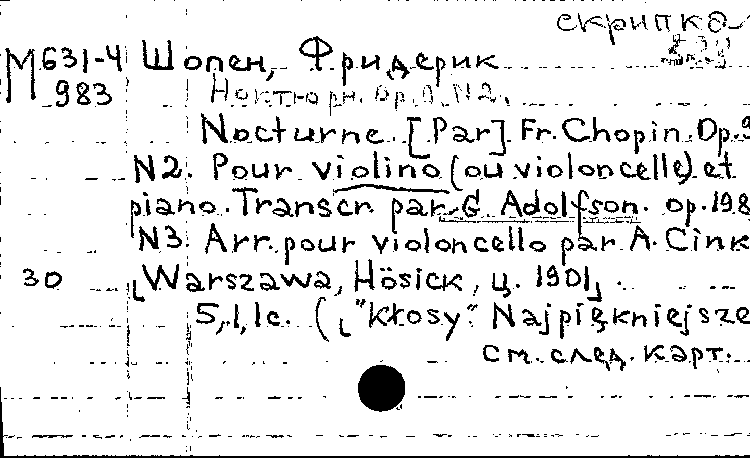 скрипка
М631-4 Шопен, Фридерик
983 Ноктюрн. Op.9. N2.
Nocturne. [Par] Fr. Chopin. Op.9
N2. Pour violino (ou violoncelle) et
piano. Transcr. par G. Adolfson. op.198
N3. Arr. pour violoncello par A. Cink
30 [Warszawa, Hösick, ц. 1901]
5,1,1c. ( ["Kłosy". Najpiękniejsze
см. след. карт.